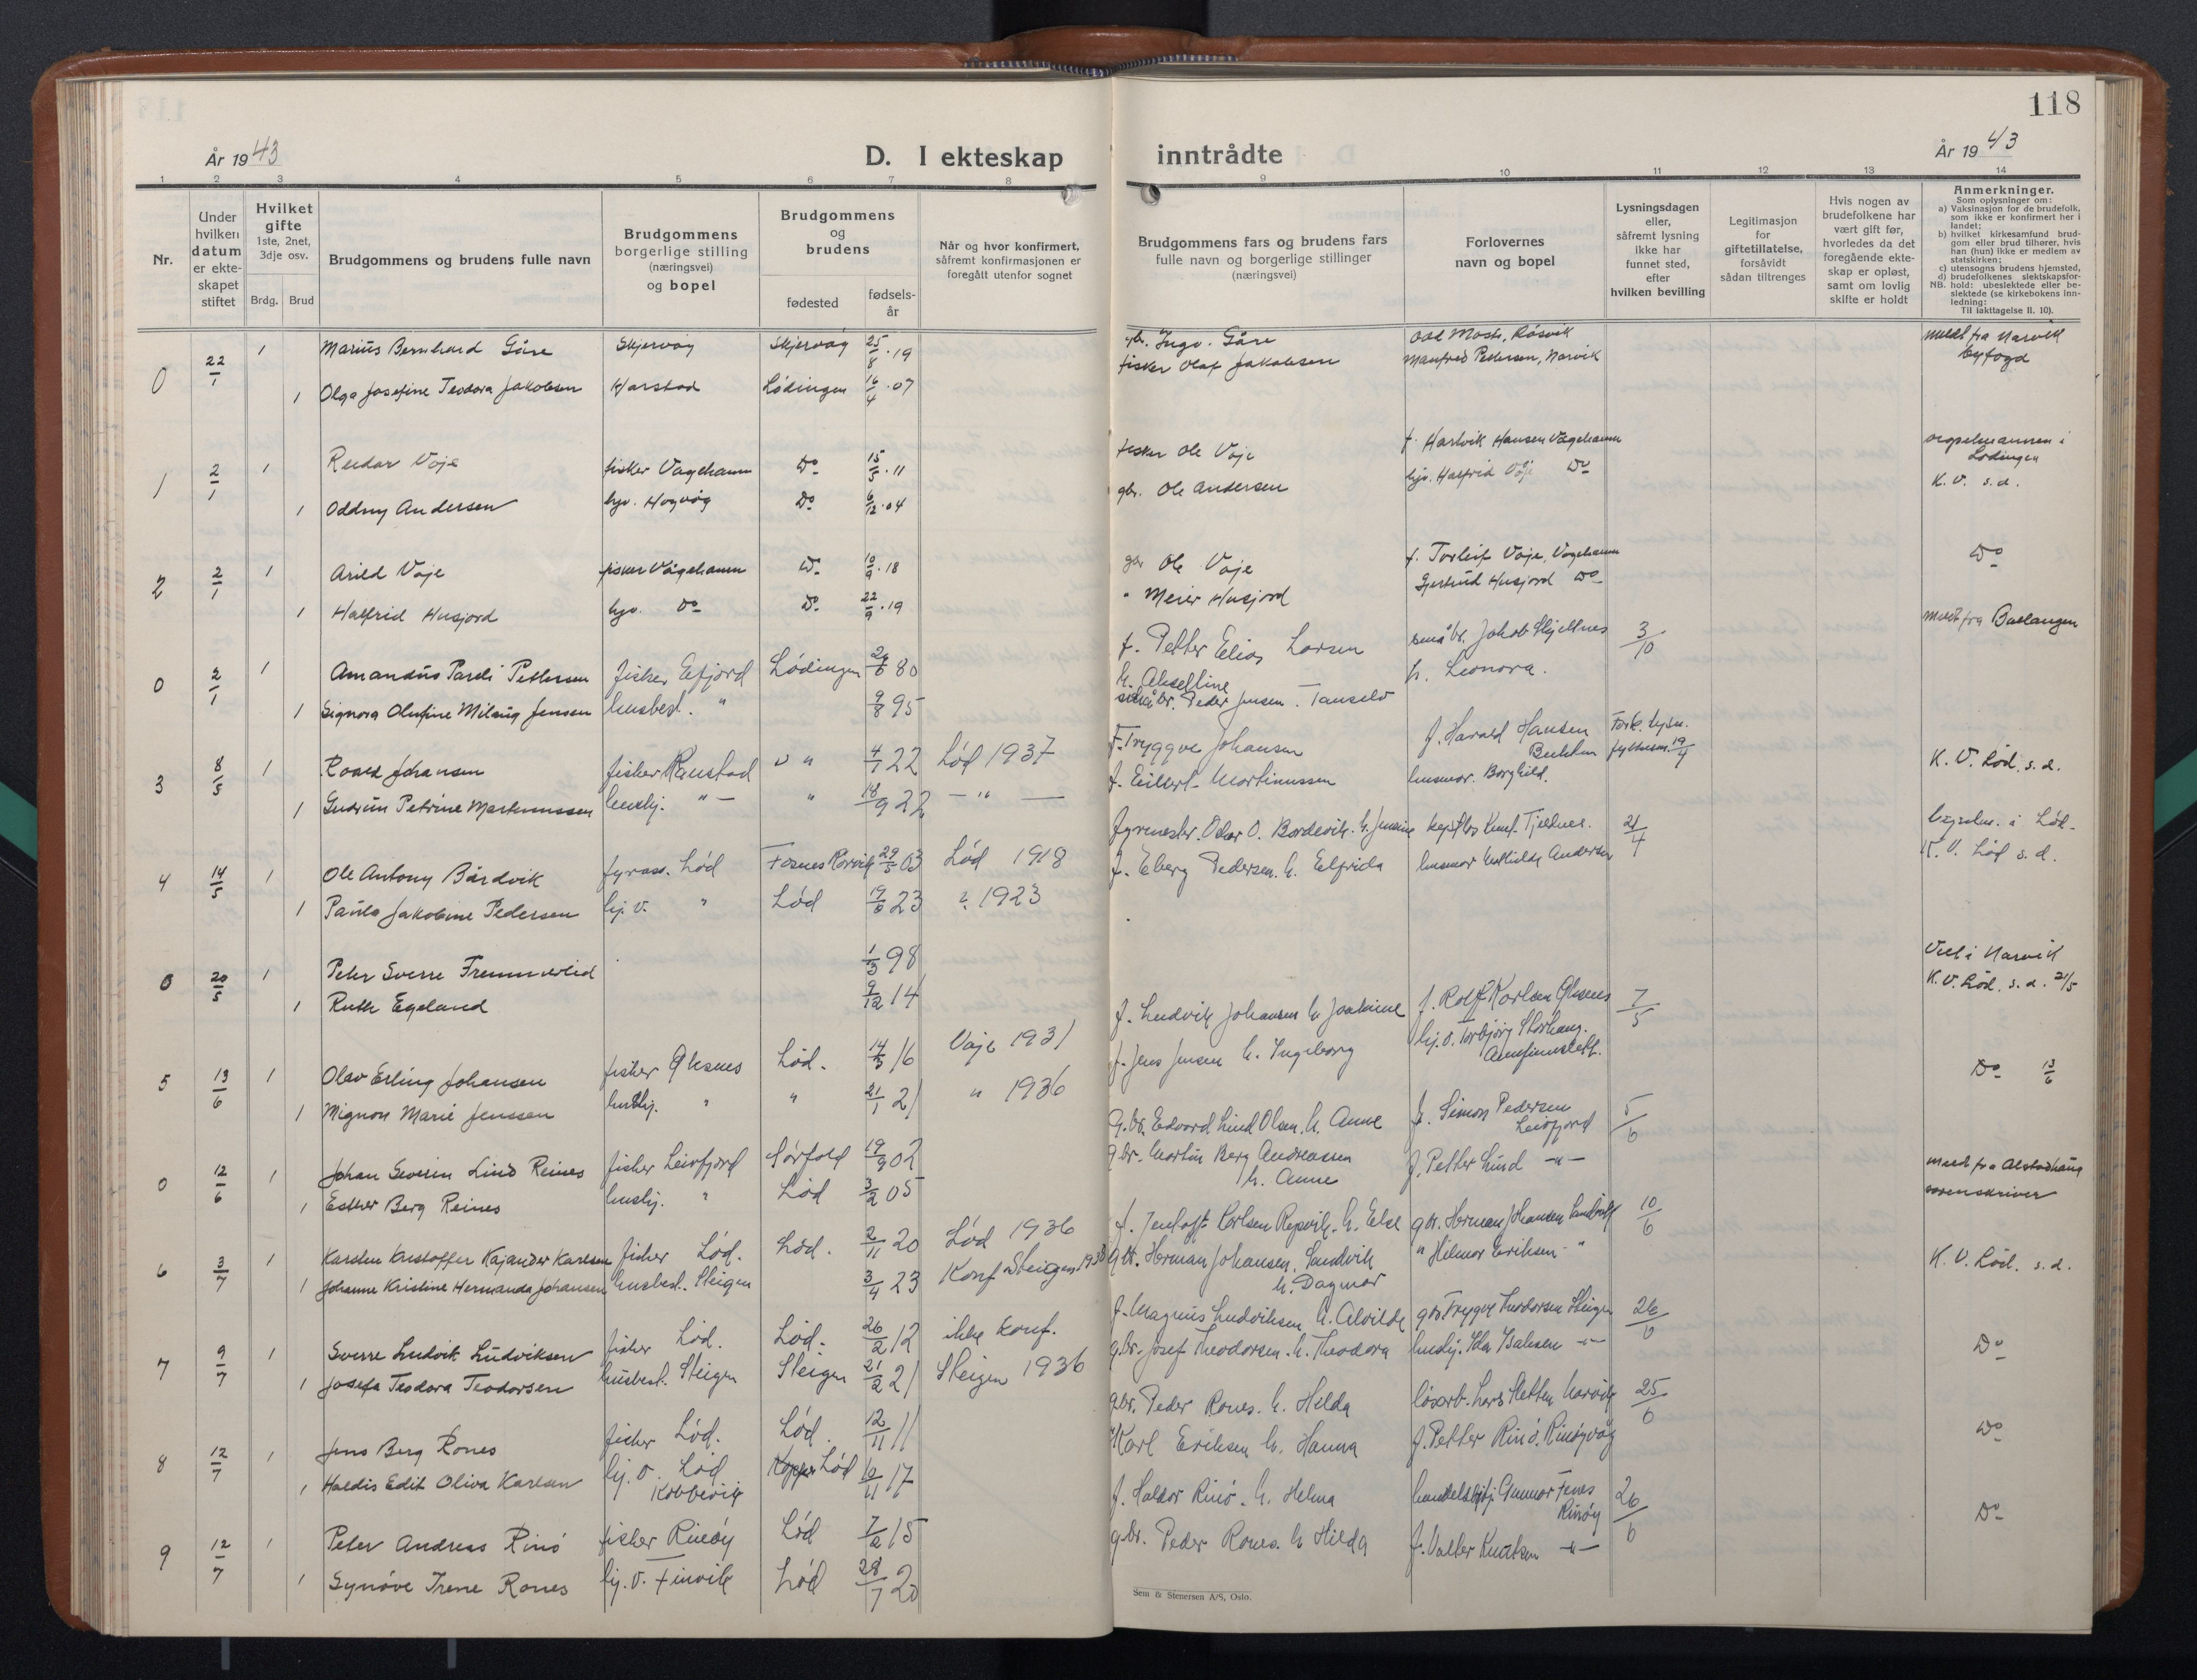 118
År 1943
D. I ekteskap inntrådte
År 1943
1 2 3 4 5 6 7 8 9 10 11 12 13 14
Nr.
Under hvilken datum er ekteskapet stiftet
Hvilket gifte
1ste, 2net, 3dje osv.
Brdg. Brud
Brudgommens og brudens fulle navn
Brudgommens borgerlige stilling (næringsvei) og bopel
Brudgommens og brudens
fødested
fødsels-år
Når og hvor konfirmert, såfremt konfirmasjonen er foregått utenfor sognet
Brudgommens fars og brudens fars fulle navn og borgerlige stillinger (næringsvei)
Forlovernes navn og bopel
Lysningsdagen eller, såfremt lysning ikke har funnet sted, efter hvilken bevilling
Legitimasjon for giftetillatelse, forsåvidt sådan tiltrenges
Hvis nogen av brudefolkene har vært gift før, hvorledes da det foregående ekteskap er opløst, samt om lovlig skifte er holdt
Anmerkninger.
Som oplysninger om:
a) Vaksinasjon for de brudefolk, som ikke er konfirmert her i landet;
b) hvilket kirkesamfund brudgom eller brud tilhører, hvis han (hun) ikke er medlem av statskirken;
c) utensogns brudens hjemsted,
d) brudefolkenes slektskapsforhold: ubeslektede eller beslektede (se kirkebokens innledning:
NB.
Til iakttagelse II. 10).
0 22/1 1 Marius Bernhard Gåre Skjervøy Skjervøy 25/8 19 gbr. Ingv. Gåre Odd Moste, Råsvik meldt fra Narvik
1 Olga Josefine Teodora Jakobsen Harstad Lødingen 16/4 07 fisker Olaf Jakobsen Manfred Pettersen, Narvik byfogd
1 2/1 1 Reidar Voje fisker Vågehamn Do 15/5 11 fisker Ole Voje f. Hartvik Hansen Vågehamn i Lødingen
1 Oddny Andersen hjv. Do 6/12 04 gbr. Ole Andersen hjv. Halfrid Voje Do K.V. s.d.
2 2/1 1 Arild Voje fisker Vågehamn Do 10/9 18 gbr Ole Voje f. Torleif Voje, Vågehamn Do
1 Halfrid Husjord hjv. Do Do 22/9 19 " Meier Husjord Gjertrud Husjord Do
0 2/1 1 Amandus Pareli Pettersen fisker Efjord Lødingen 80 f. Petter Elias Larsen småbr. Jakob Skjellnes 3/10 meldt fra Ballangen
1 Signora Olufine Milaug Jensen husbest. " 9/8 95 småbr. Peder Jensen h. Leonora.
3 8/5 1 Roald Johansen fisker Ranstad " " 4/1 22 Lød 1937 F. Tryggve Johansen f. Harald Hansen K.V. Lød. s.d.
1 Gudrun Petrine Martinussen hushj. " — " 18/9 22 — " — f. Eilert Martinussen husmor. Borghild.
4 14/5 1 Ole Antony Bårdvik fyrass. Lød Fosnes Rørvik 29/5 03 Lød 1918 21/4 i Lød.
1 Paula Jakobine Pedersen hj.v. " Lød 23 1923 f. Eberg Pedersen. h. Elfrida husmor Andersen K.V. Lød s.d.
0 20/5 1 Peter Sverre Fremmerlid 1/3 98 Viel i Narvik
1 Ruth Egeland 9/12 14 K.V. Lød. s.d. 21/5
5 13/6 1 Olav Erling Johansen fisker Øksnes Lød. 14/3 16 Voje 1931 f. Ludvik Johansen h Joakime f. Rolf Karlsen Øksnes 7/5 Do 13/6
1 Mignon Marie Jenssen hushj. " " 21/1 21 " 1936 f. Jens Jensen h. Ingeborg hj.v. Torbjørg Storhaug.
0 12/6 1 Johan Severin Lind Reines fisker Leirfjord Sørfold 19/9 02 G.br. Edvard Lind Olsen. h. Anne f. Simon Pedersen Leirfjord 5/6 meldt fra Alstadhaug
1 Esther Berg Reines hushj. " Lød 3/2 05 gbr. Martin Berg Andreassen h. Anne f. Petter Lind —"— sorenskriver
6 3/7 1 Karsten Kristoffer Kajander Karlsen fisker Lød. Lød. 2/11 20 Lød 1936 f. Jentoft Karlsen Repvik. h. Else gbr. Herman Johansen Sandvik 10/6 K.V. Lød. s.d.
1 Johanne Kristine Hermanda Johansen husbest. Steigen 3/4 23 Konf Steigen 1938 gbr. Herman Johansen, Sandvik h. Dagmar " Hilmar Eriksen "
7 9/7 1 Sverre Ludvik Ludviksen fisker Lød. Lød. 26/2 12 ikke konf. f. Magnus Ludviksen h. Alvilde gbr Trygve Teodorsen Steigen 26/6 Do
1 Josefa Teodora Teodorsen husbest. Steigen Steigen 21/2 21 Steigen 1936 gbr. Josef Theodorsen. h. Theodora hushj. Ida Isaksen —"—
8 12/7 1 Jens Berg Rones fisker Lød. Lød. 12/11 11 gbr. Peder Rones. h. Helda løsarb. Lars Sletten Narvik 25/6 Do
1 Haldis Edit Oliva Karlsen hj.v. Lød Kobbevik Lød 10/11 17 Karl Eriksen h. Hanna f. Petter Rinø. Rinøyvåg
9 12/7 1 Peter Andreas Rinø fisker Rinøy Lød 7/2 15 f. Haldor Rinø. h. Helma handelsbetj. Gunnar Fenes Rinøy 26/6 Do
1 Synøve Irene Rones hj.v. Finvik Lød 28/7 20 gbr. Peder Rones. h Hilda f. Valter Knutsen —"—
Sem & Stenersen A/S, Oslo.